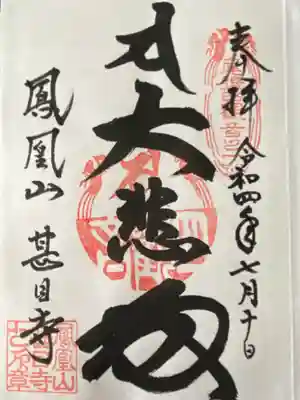 奉拝
令和四年七月十日
大悲殿
鳳凰山
甚目寺
鳳凰山